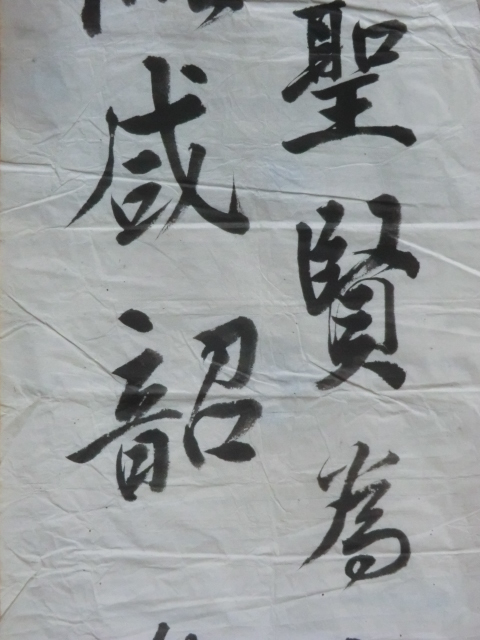 聖賢為
咸韶